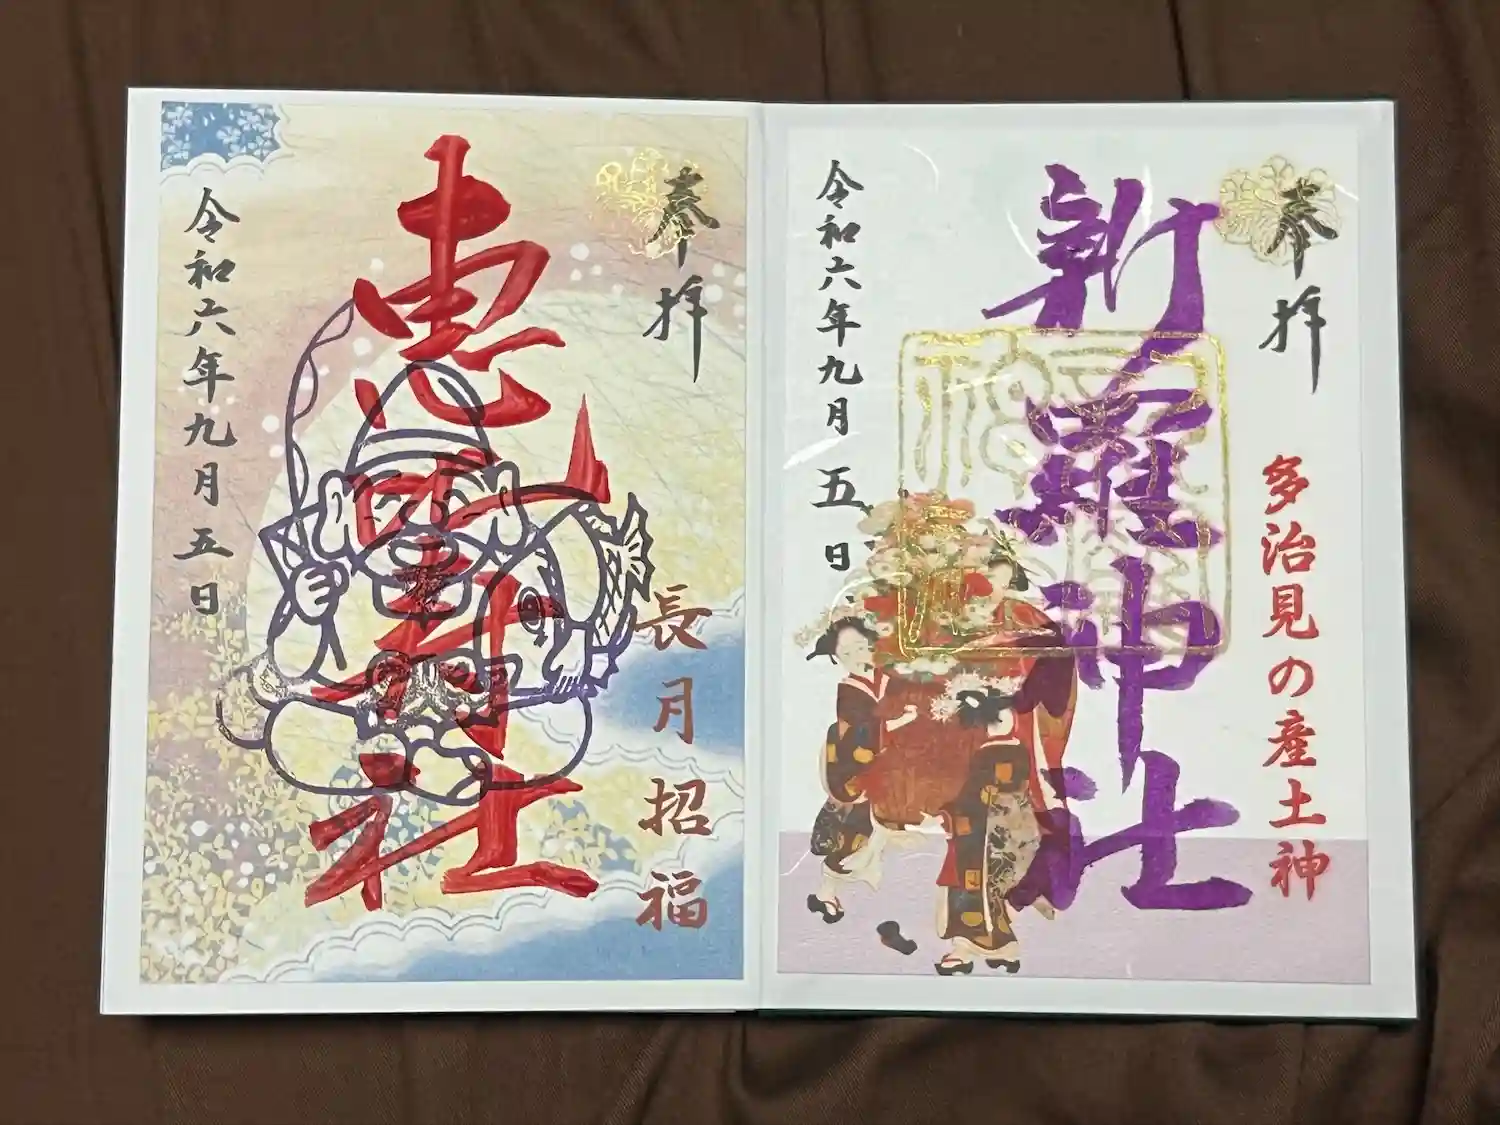 奉拝
多治見の産土神
新羅神社
令和六年九月五日
奉拝
長月招福
恵比寿社
令和六年九月五日